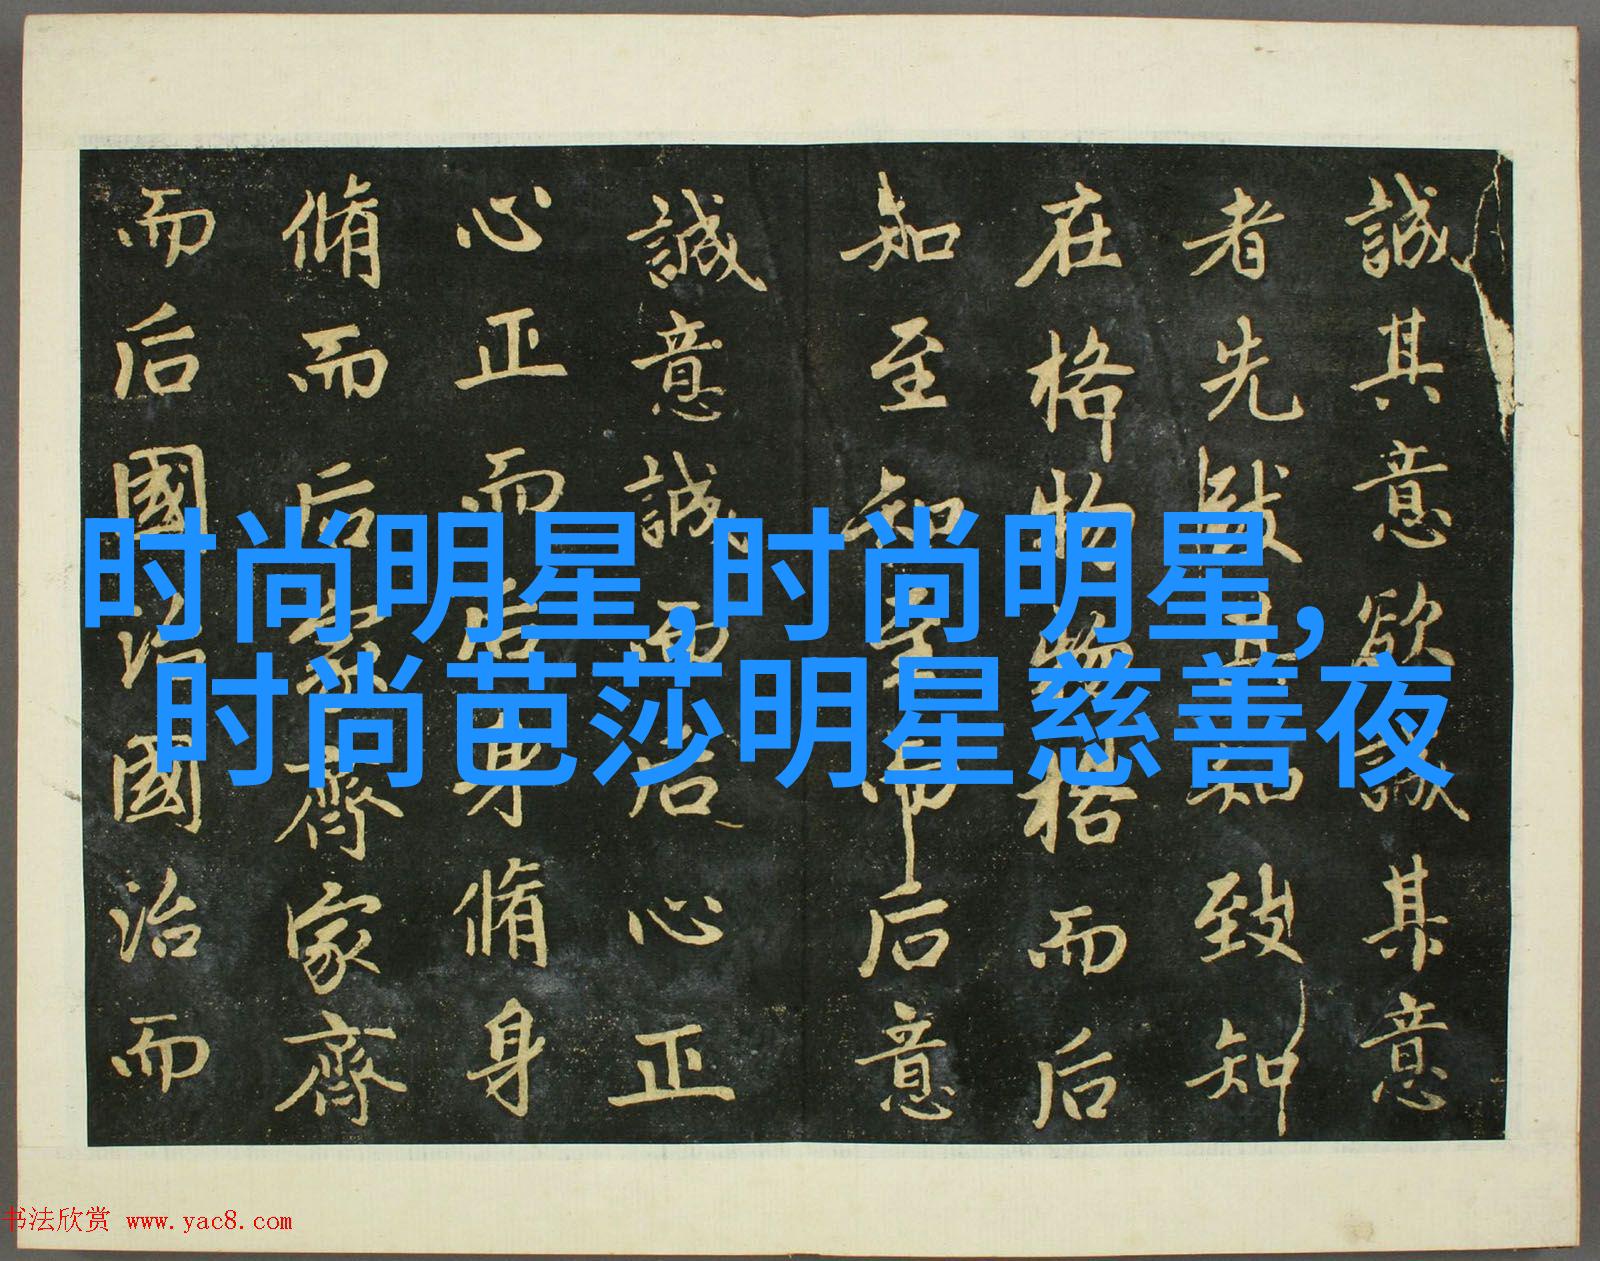 誠其意欲誠其意
者先致其知致知
在格物物格而后
知至知至而后意
誠意誠而后心正
心正而后身脩身
脩而后家齊家齊
而后國治國治而
时尚明星,时尚明星,
时尚芭莎明星慈善夜
书法欣赏 www.yac8.com